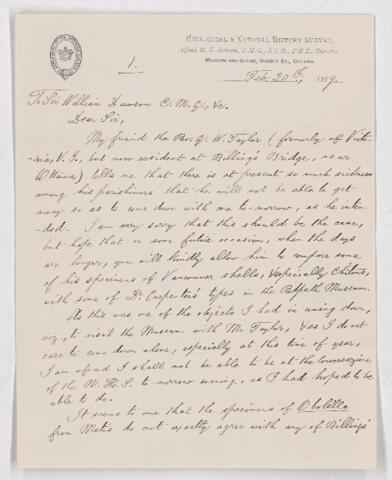 GEOLOGICAL & NATURAL HISTORY SURVEY,
Alfred R. C. Selwyn, C.M.G., L.L.D., F.R.S., Director
MUSEUM AND OFFICE, SUSSEX ST., OTTAWA
1.
Feb. 20th, 1889.
To Sir William Dawson C.M.G., &c.
Dear Sir,
My friend the Rev. G. W. Taylor (formerly of Victo-
ria, V.I., but now resident at Billing's Bridge, near
Ottawa) tells me that there is at present so much sickness
among his parishioners that he will not be able to get
away so as to come down with me to-morrow, as he inten-
ded. I am very sorry that this should be the case,
but hope that on some future occasion, when the days
are longer, you will kindly allow him to compare some
of his specimens of Vancouver shells, & especially Chitons,
with some of Dr. Carpenter's types in the Redpath Museum.
As this was one of the objects I had in coming down,
viz., to visit the Museum with Mr. Taylor, & as I do not
care to come down alone, especially at this time of year,
I am afraid I shall not be able to be at the Conversazione
of the N. H. S. to-morrow evening, as I had hoped to be
able to do.
It seems to me that the specimens of Obolella
from Metis do not exactly agree with any of Billings'